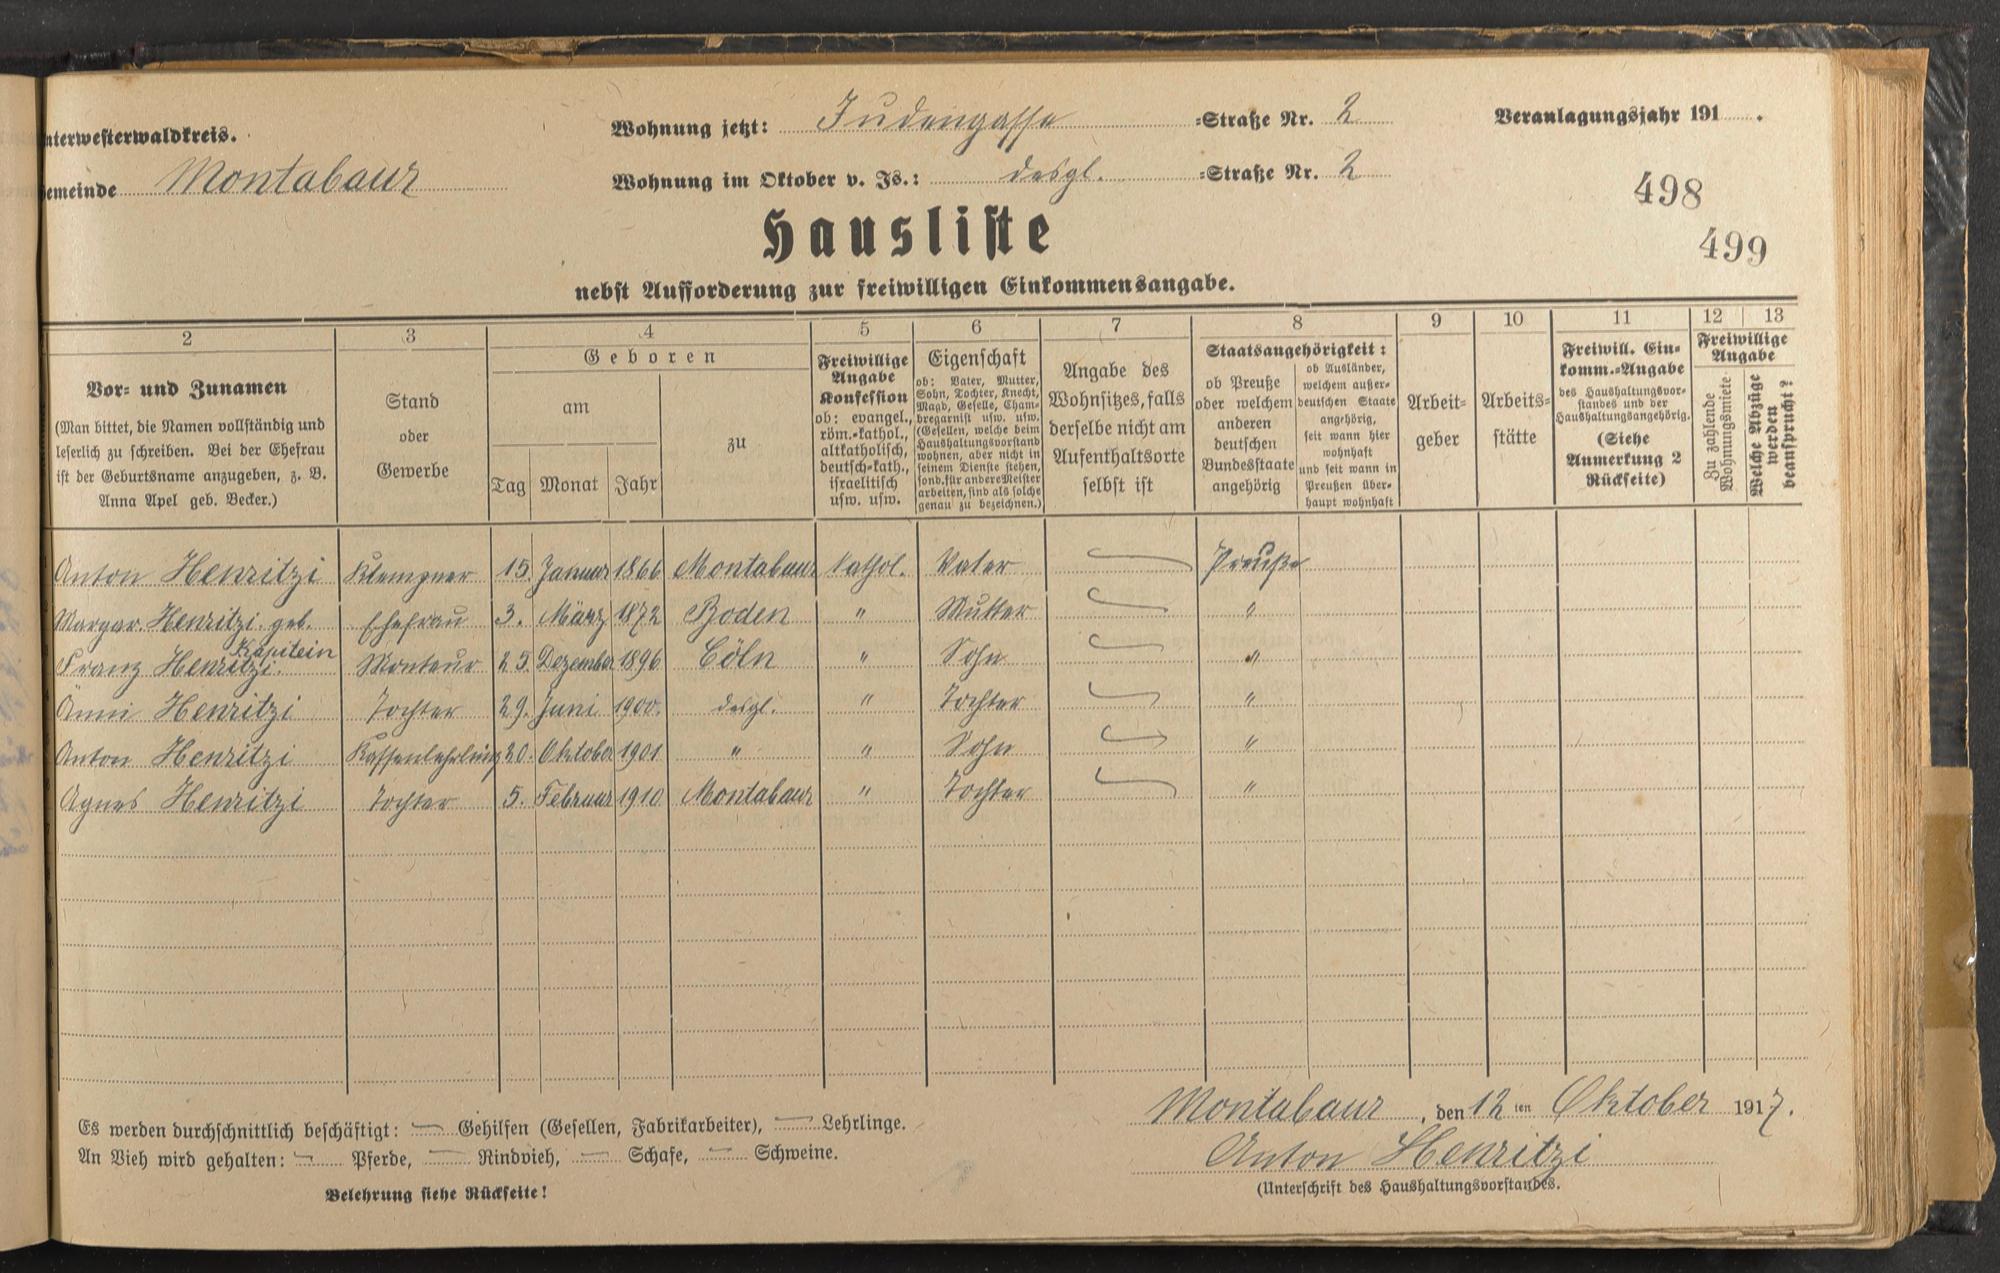 nterwesterwaldkreis.
Wohnung jetzt: Judengasse =Straße Nr. 2
Veranlagungsjahr 191 .
emeinde Montabaur
Wohnung im Oktober v. Js.: desgl. =Straße Nr. 2
498
499
Hausliste
nebst Aufforderung zur freiwilligen Einkommensangabe.
2 3 4 5 6 7 8 9 10 11 12 13
Vor- und Zunamen
(Man bittet, die Namen vollständig und
leserlich zu schreiben. Bei der Ehefrau
ist der Geburtsname anzugeben, z. B.
Anna Apel geb. Becker.)
Stand
oder
Gewerbe
Geboren
am
Tag Monat Jahr
zu
Freiwillige
Angabe
Konfession
ob: evangel.,
röm.-kathol.,
altkatholisch,
deutsch-kath.,
israelitisch
usw. usw.
Eigenschaft
ob: Vater, Mutter,
Sohn, Tochter, Knecht,
Magd, Geselle, Cham-
bregarnist usw. usw.
(Gesellen, welche beim
Haushaltungsvorstand
wohnen, aber nicht in
seinem Dienste stehen,
sond. für andere Meister
arbeiten, sind als solche
genau zu bezeichnen.)
Angabe des
Wohnsitzes, falls
derselbe nicht am
Aufenthaltsorte
selbst ist
Staatsangehörigkeit:
ob Preuße
oder welchem
anderen
deutschen
Bundesstaate
angehörig
ob Ausländer,
welchem außer-
deutschen Staate
angehörig,
seit wann hier
wohnhaft
und seit wann in
Preußen über-
haupt wohnhaft
Arbeit-
geber
Arbeits-
stätte
Freiwill. Ein-
komm.-Angabe
des Haushaltungsvor-
standes und der
Haushaltungsangehörig.
(Siehe
Anmerkung 2
Rückseite)
Freiwillige
Angabe
Zu zahlende
Wohnungsmiete
Welche Abzüge
werden
beansprucht?
Anton Henritzi Klempner 15. Januar 1866 Montabaur kathol. Vater Preuße
Margar. Henritzi. geb. Kapitein Ehefrau 3. März 1872 Boden " Mutter "
Franz Henritzi. Monteur 25. Dezember 1896 Cöln " Sohn "
Änni Henritzi Tochter 29. Juni 1900. desgl. " Tochter "
Anton Henritzi Kassenlehrling 20. Oktober 1901 " " Sohn "
Agnes Henritzi Tochter 5. Februar 1910 Montabaur " Tochter "
Montabaur, den 12ten Oktober 1917.
Es werden durchschnittlich beschäftigt: — Gehilfen (Gesellen, Fabrikarbeiter), — Lehrlinge.
An Vieh wird gehalten: — Pferde, — Rindvieh, — Schafe, — Schweine.
Anton Henritzi
(Unterschrift des Haushaltungsvorstandes.
Belehrung siehe Rückseite!